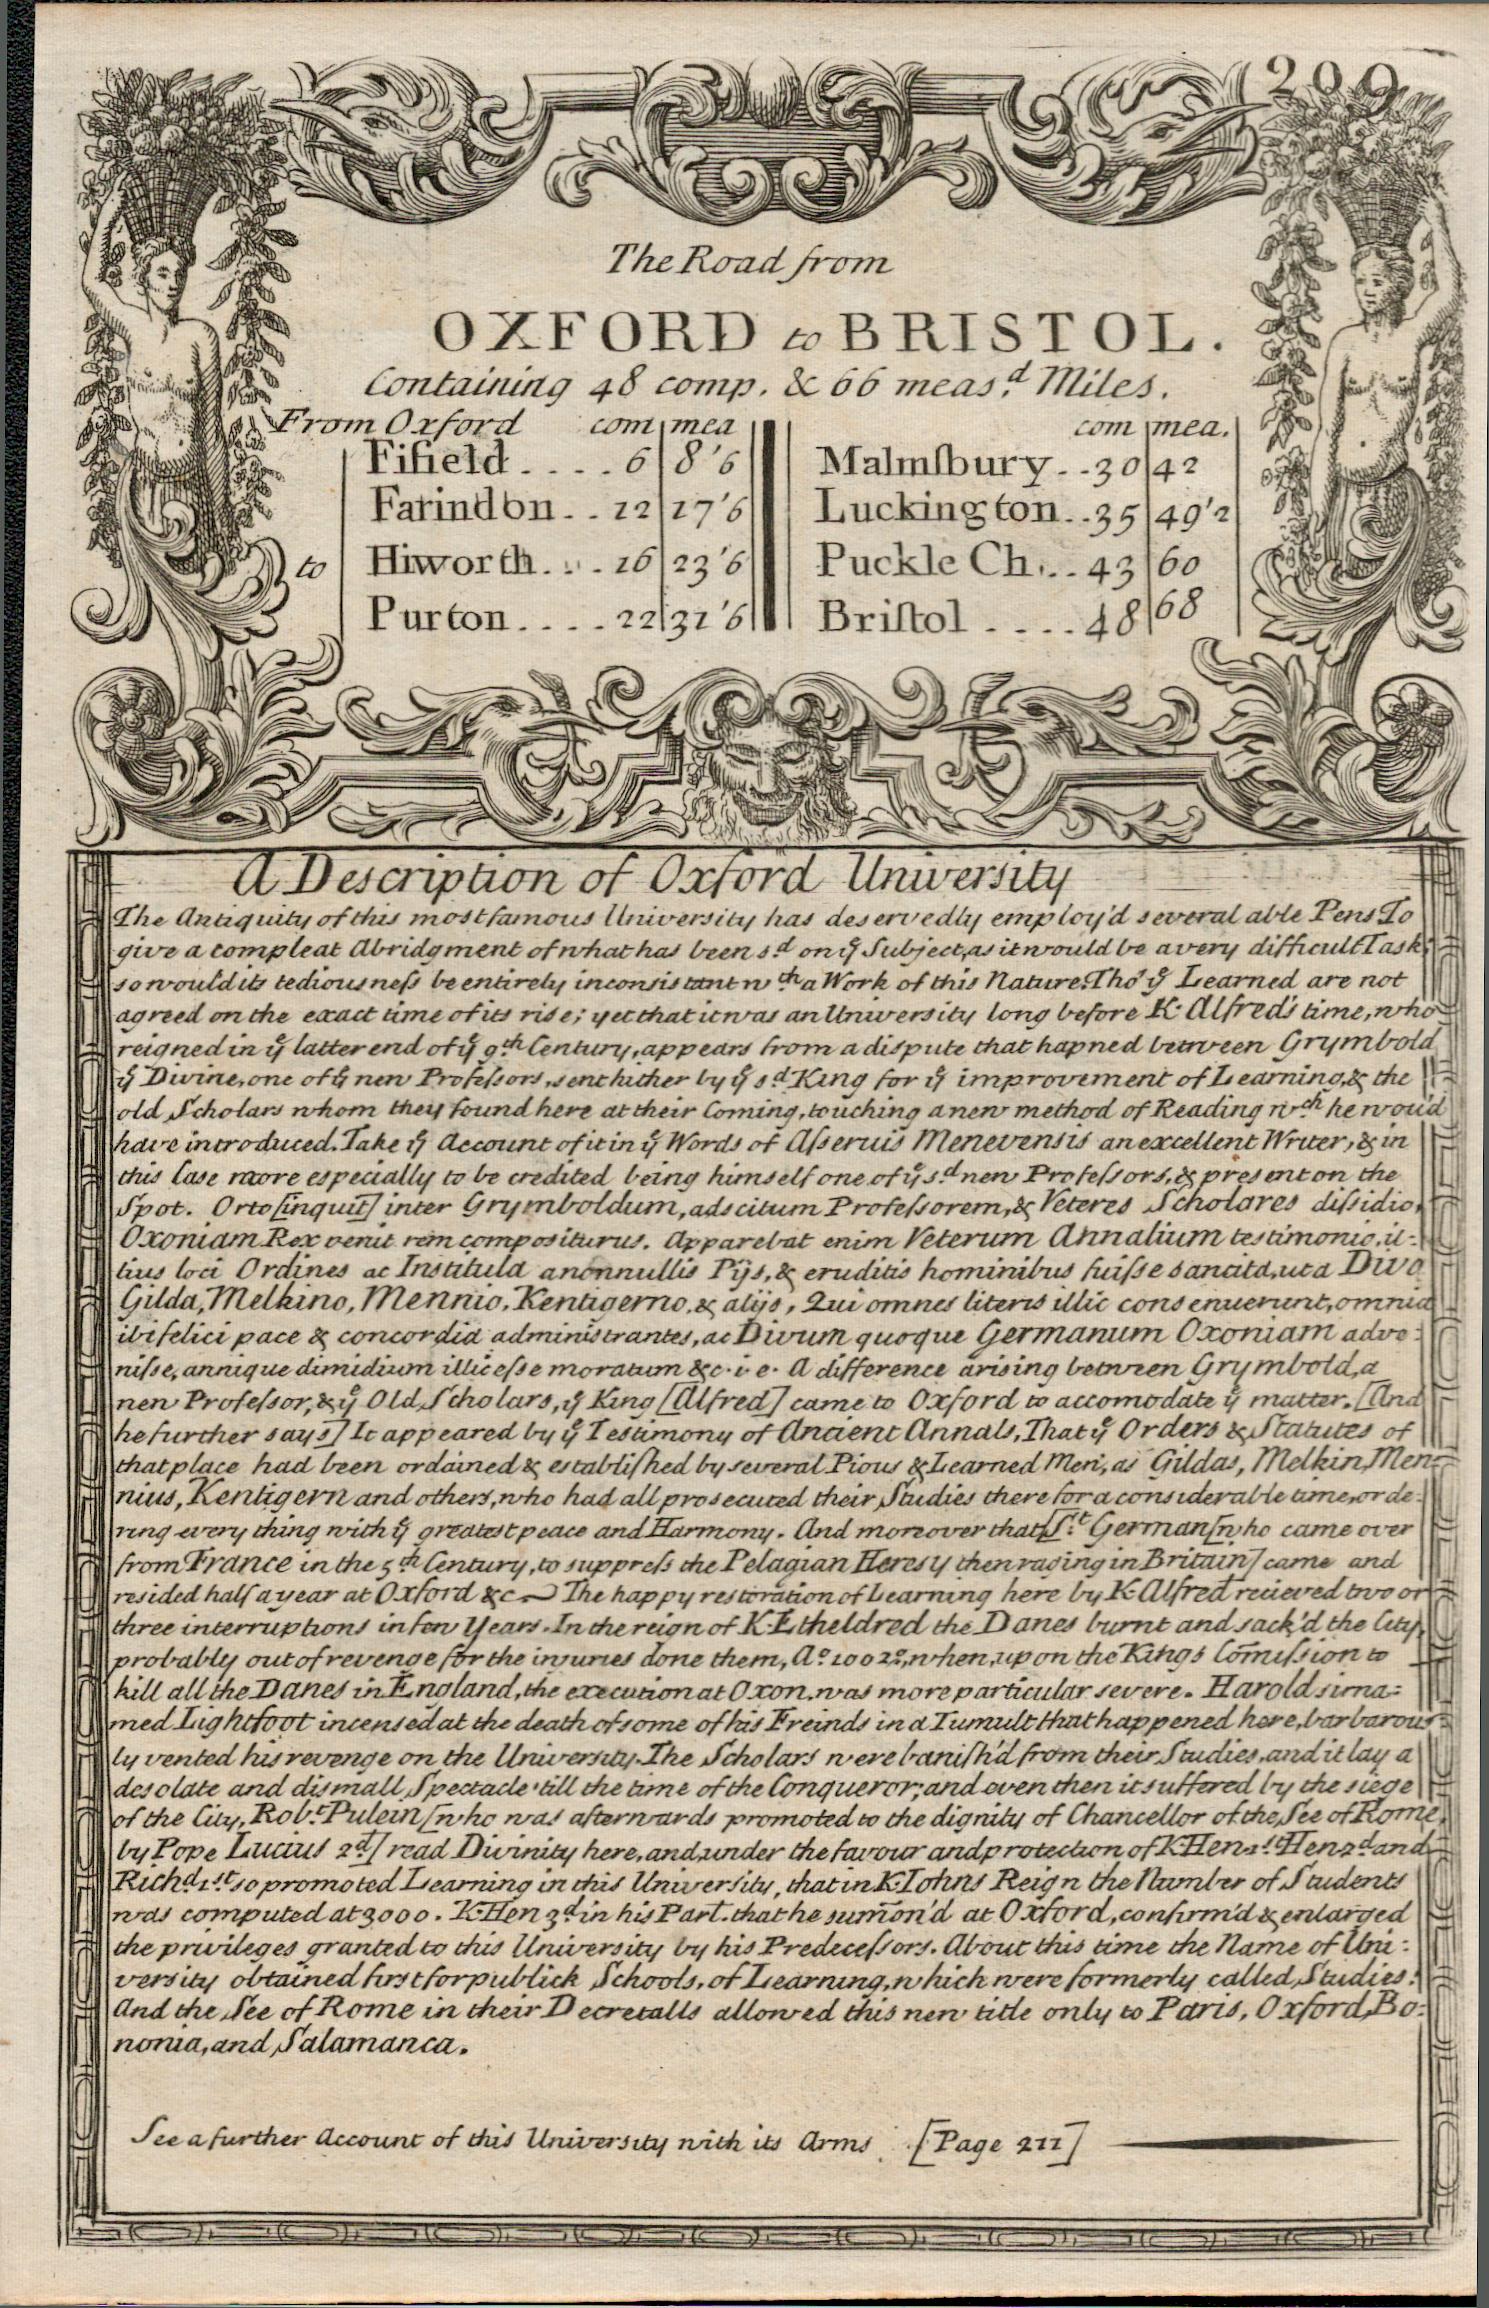 209
The Road from
OXFORD to BRISTOL.
Containing 48 comp. & 66 meas.d Miles.
From Oxford com mea
com mea.
to
Fifield . . . . 6 8'6
Farindon . . 12 17'6
Hiworth . . . 16 23'6
Purton . . . . 22 31'6
Malmſbury . . 30 42
Luckington . . 35 49'2
Puckle Ch. . . 43 60
Briſtol . . . . 48 68
A Description of Oxford University
The Antiquity of this most famous University has deservedly employ'd several able Pens To
give a compleat Abridgment of what has been s.d on yͤ Subject, as it would be a very difficult Task,
so would its tediousneſs be entirely inconsistant wth a Work of this Nature. Tho' yͤ Learned are not
agreed on the exact time of its rise; yet that it was an University long before K. Alfred's time, who
reigned in yͤ latter end of yͤ 9th Century, appears from a dispute that hapned between Grymbold
yͤ Divine, one of yͤ new Profeſsors, sent hither by yͤ s.d King for yͤ improvement of Learning, & the
old Scholars whom they found here at their Coming, touching a new method of Reading wch he wou'd
have introduced. Take yͤ Account of it in yͤ Words of Aſseruis Menevensis an excellent Writer, & in
this Case more especially to be credited being himself one of yͤ s.d new Profeſsors, & present on the
Spot. Orto [inquit] inter Grymboldum, adscitum Profeſsorem, & Veteres Scholares diſsidio,
Oxoniam Rex venit rem compositurus. Apparebat enim Veterum Annalium testimonio, il=
lius loci Ordines ac Institula anonnullis Pijs, & eruditis hominibus fuiſse sancita, ut a Divo
Gilda, Melkino, Mennio, Kentigerno, & alijs, Qui omnes literis illic consenuerunt, omnia
ibi felici pace & concordia administrantes, ac Divum quoque Germanum Oxoniam adve=
niſse, annique dimidium illic eſse moratum &c. i. e. A difference arising between Grymbold, a
new Profeſsor, & yͤ Old Scholars, yͤ King [Alfred] came to Oxford to accomodate yͤ matter. [And
he further says] It appeared by yͤ Testimony of Ancient Annals, That yͤ Orders & Statutes of
that place had been ordained & establiſhed by several Pious & Learned Men, as Gildas, Melkin, Men=
nius, Kentigern and others, who had all prosecuted their Studies there for a considerable time, orde=
ring every thing with yͤ greatest peace and Harmony. And moreover that St. German [who came over
from France in the 5th Century, to suppreſs the Pelagian Heresy then raging in Britain] came and
resided half a year at Oxford &c. The happy restoration of Learning here by K. Alfred recieved two or
three interruptions in few Years. In the reign of K. Etheldred the Danes burnt and sack'd the City,
probably out of revenge for the injuries done them, Ao. 1002o, when, upon the Kings Com̄iſsion to
kill all the Danes in England, the execution at Oxon. was more particular severe. Harold sirna=
med Lightfoot incensed at the death of some of his Freinds in a Tumult that happened here, barbarous=
ly vented his revenge on the University. The Scholars were baniſh'd from their Studies, and it lay a
desolate and dismall Spectacle 'till the time of the Conqueror; and even then it suffered by the siege
of the City, Robt. Pulein [who was afterwards promoted to the dignity of Chancellor of the See of Rome,
by Pope Lucius 2d] read Divinity here, and, under the favour and protection of K. Hen. 1st. Hen. 2d and
Richd. 1st so promoted Learning in this University, that in K. Iohns Reign the Number of Students
was computed at 3000. K. Hen 3d in his Parl.t that he sum̄on'd at Oxford, confirm'd & enlarged
the privileges granted to this University by his Predeceſsors. About this time the Name of Uni=
versity obtained first for publick Schools, of Learning, which were formerly called Studies:
And the See of Rome in their Decretalls allowed this new title only to Paris, Oxford, Bo=
nonia, and Salamanca.
See a further Account of this University with its Arms. [Page 211]